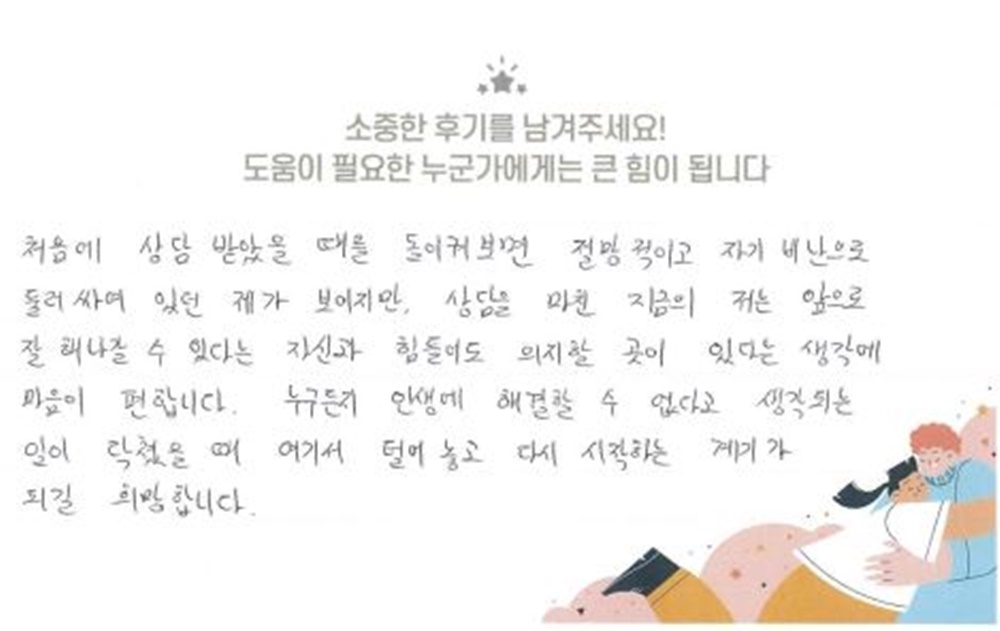 소중한 후기를 남겨주세요!
도움이 필요한 누군가에게는 큰 힘이 됩니다
처음에 상담 받았을 때를 돌이켜보면 절망적이고 자기 비난으로
둘러 싸여 있던 제가 보이지만, 상담을 마친 지금의 저는 앞으로
잘 해나갈 수 있다는 자신과 힘들어도 의지할 곳이 있다는 생각에
마음이 편합니다. 누구든지 인생에 해결할 수 없다고 생각되는
일이 닥쳤을 때 여기서 털어 놓고 다시 시작하는 계기가
되길 희망합니다.